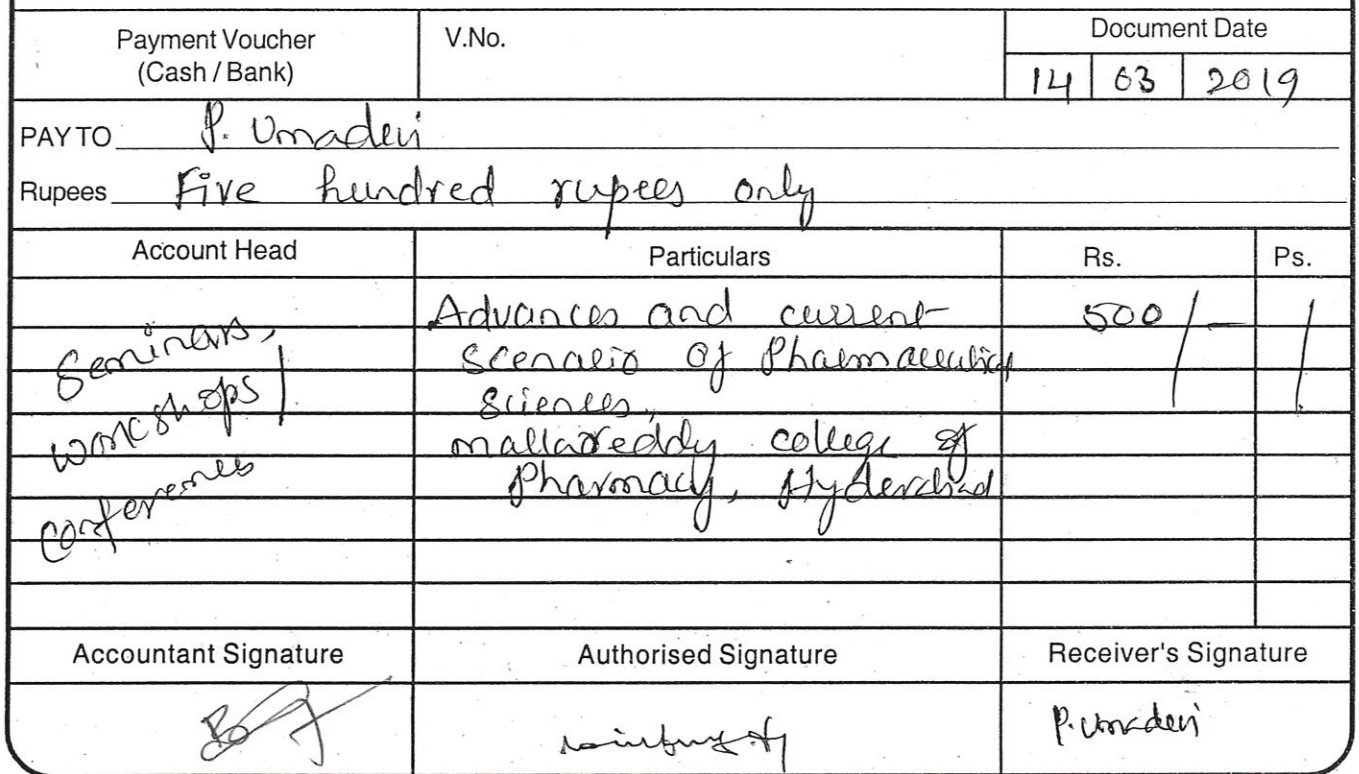 Payment Voucher
(Cash / Bank)
V.No.
Document Date
14 03 2019
PAY TO P. Umadevi
Rupees Five hundred rupees only
Account Head Particulars Rs. Ps.
Seminars,
workshops/
conferences
Advances and current 500/-
scenario of Pharmaceutical
Sciences,
mallareddy college of
Pharmacy, Hyderabad
Accountant Signature Authorised Signature Receiver's Signature
P. Umadevi